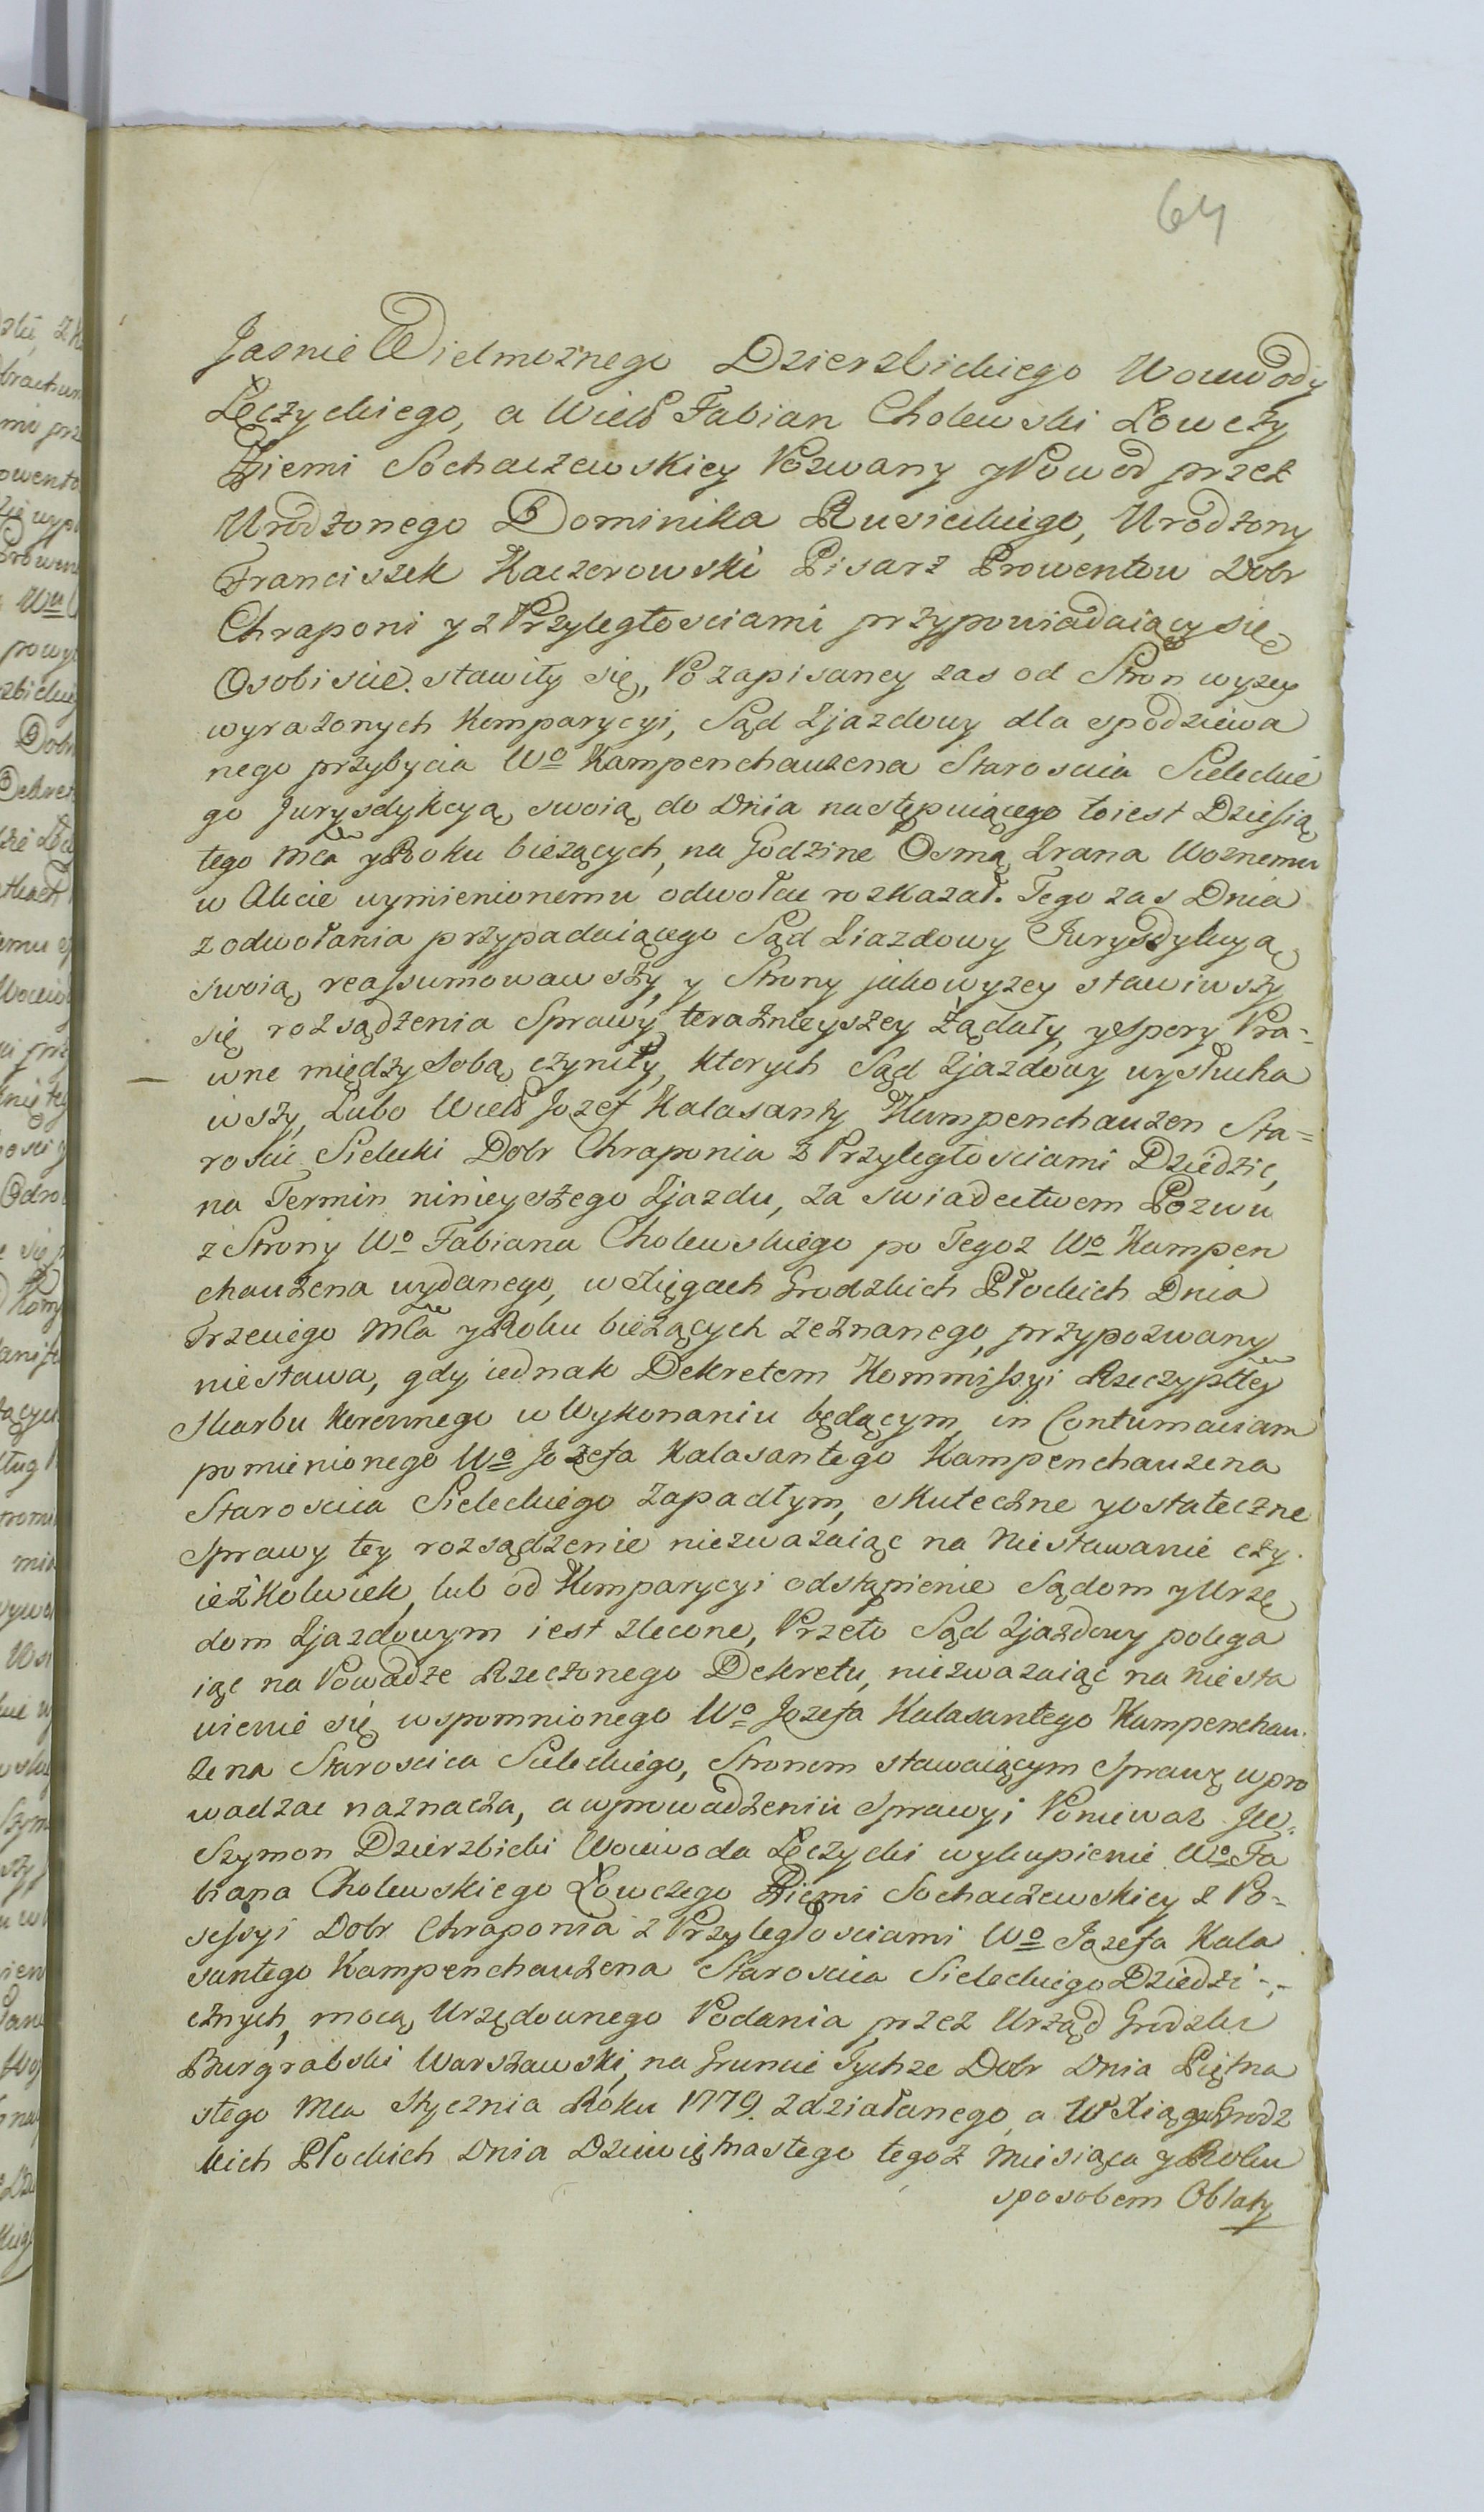 64
Jasnie Wielmoznego Dzierzbickiego Woiewody
Łęczyckiego, a Wielo Fabian Cholewski Łowczy
Ziemi Sochaczewskiey Pozwany y Powod przez
Urodzonego Dominika Rusieckiego, Urodzony
Franciszek Kaczorowski Pisarz Prowentow Dobr
Chraponi y z Przyległosciami przypowiadaiący się
Osobiscie stawiły się, Po zapisaney zas od Stron wyzey
wyrazonych Komparycyi, Sąd Zjazdowy dla spodziewa
nego przybycia Wo Kampenchauzena Starosica Sieleckie
go Jurysdykcyą swoią do Dnia następuiącego toiest Dziesią
tego Mca y Roku bieżących, na Godzine Osmą Zrana Woznemu
w Akcie wymienionemu odwołac rozkazał. Tego zas Dnia
z odwołania przypadaiącego Sąd Ziazdowy Jurysdykcyą
swoią reassumowawszy, y Strony jako wyzey stawiwszy
się rozsądzenia Sprawy teraźnieyszey żądały, y Spory Pra=
wne między sobą czyniły, ktorych Sąd Zjazdowy wysłucha
wszy, Lubo Wielo Jozef Kalasanty Kampenchauzen Sta=
roscic Sielecki Dobr Chraponia z Przyległosciami Dziedzic,
na Termin ninieyszego Zjazdu, za swiadectwem Pozwu
z Strony Wo Fabiana Cholewskiego po Tegoz Wo Kampen
chauzena wydanego, w Xięgach Grodzkich Płockich Dnia
Trzeciego Mca y Roku bieżących zeznanego, przypozwany
niestawa, gdy iednak Dekretem Kommissyi Rzeczyptey
Skarbu Koronnego w Wykonaniu będącym, in Contumaciam
pomienionego Wo Jozefa Kalasantego Kampenchauzena
Starosica Sieleckiego zapadłym, skuteczne y ostateczne
Sprawy tey rozsądzenie niezwazaiąc na Niestawanie czy
ieżkolwiek, lub od Komparycyi odstąpienie Sądom y Urzę
dom Zjazdowym iest zlecone, Przeto Sąd Zjazdowy polega
iąc na Powadze Rzeczonego Dekretu, niezwazaiąc na niesta
wienie się wspomnionego Wo Jozefa Kalasantego Kampenchau.
zena Starosica Sieleckiego, Stronom stawaiącym Sprawę wpro
wadzac naznacza, a wprowadzeniu Sprawyi Poniewaz JW.
Szymon Dzierzbicki Woiewoda Łęczycki wykupienie Wo Fa
biana Cholewskiego Łowczego Ziemi Sochaczewskiey z Po=
sessyi Dobr Chraponia z Przyległosciami Wo Jozefa Kala
santego Kampenchauzena Starosica Sieleckiego Dziedzi-
cznych, mocą Urzędownego Podania przez Urząd Grodzki
Burgrabski Warszawski, na Gruncie Tychze Dobr Dnia Piętna
stego Mca Stycznia Roku 1779. zdziałanego, a W Xięgach Grodz
kich Płockich Dnia Dziewiętnastego tegoz Miesiąca y Roku
sposobem Oblaty